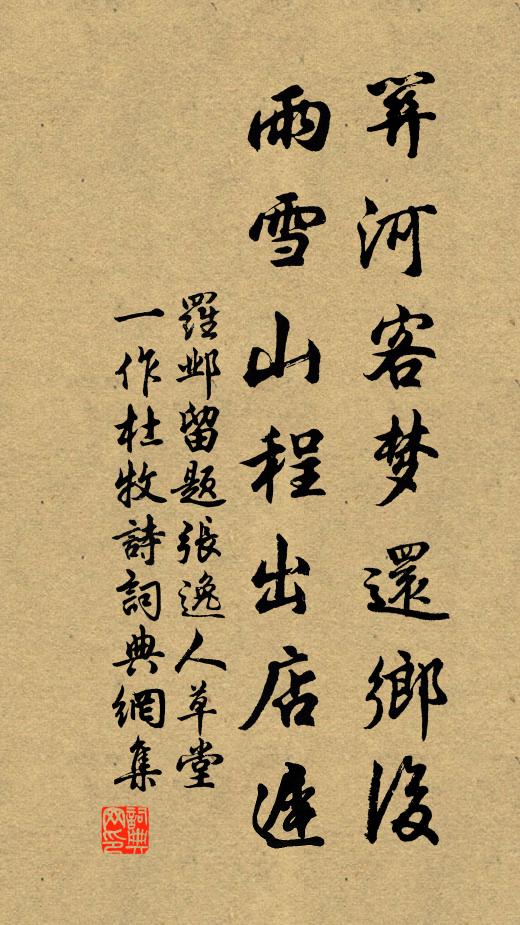 關河客梦還鄉後
雨雪山程出店遲
羅鄴留題張逸人草堂
一作杜牧詩詞典網集
詞典
网印